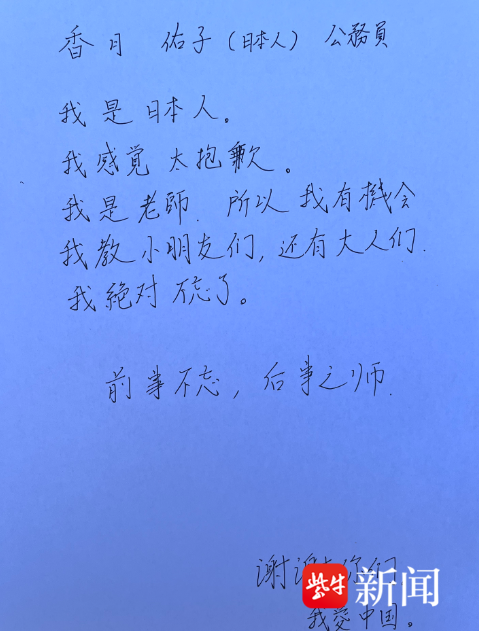 香月 佑子（日本人）公務員
我是日本人。
我感觉太抱歉。
我是老師．所以我有機会
我教小朋友们，还有大人们．
我絶对不忘了。
前事不忘，后事之师．
谢谢你们
紫牛新闻
我愛中国。